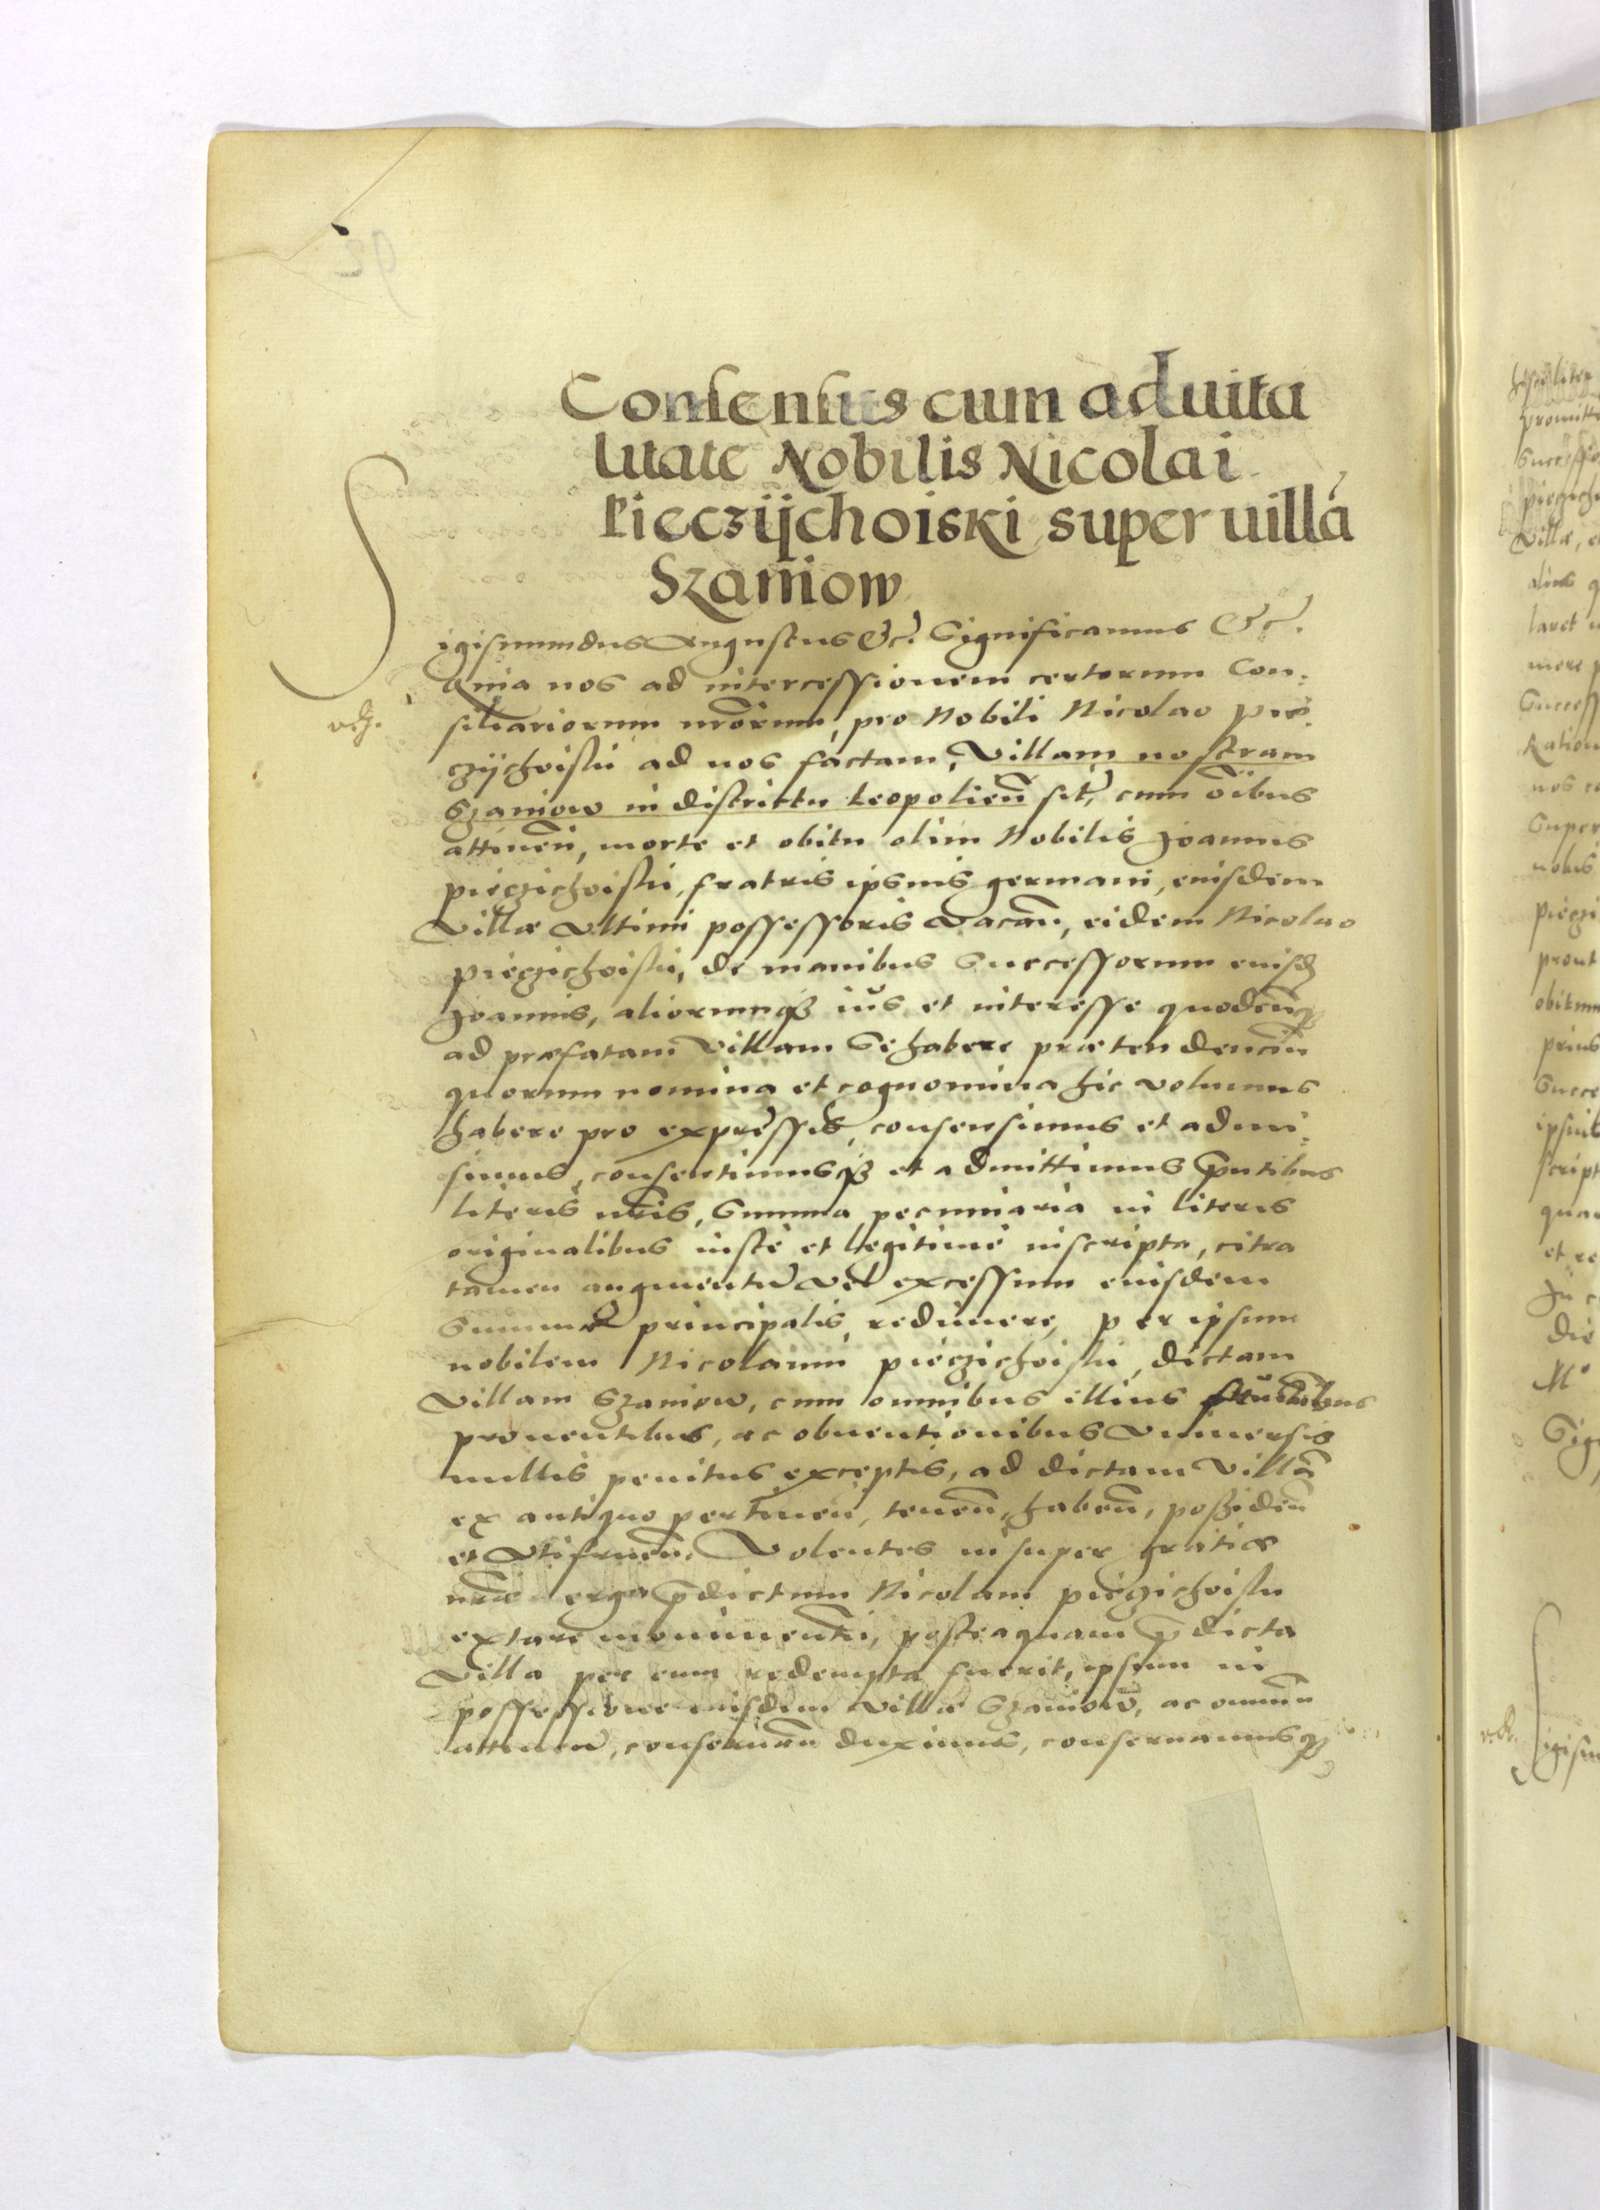 Consensus cum aduita
litate Nobilis Nicolai
Pieczijchoiski super uillã
Szaniow
Sigismundus Augustus &c. Significamus &c.
Quia nos ad intercessionem certorum Con:
siliariorum nrõrum, pro Nobili Nicolao Pie
czijchoiski ad nos factam, Villam nostram
Szaniow in districtu Leopolien̄ sit̃, cum õibus
attinen̄, morte et obitu olim Nobilis Joannis
Pieczichoiski, fratris ipsius germani, eiusdem
Villæ Vltimi possessoris Vacan̄, eidem Nicolao
Pieczichoiski, de manibus Successorum eiusd
Joannis, aliorumq3 ius et interesse quodcun̄q3
ad præfatam Villam Se habere prætendencĩu
quorum nomina et cognomina hic volumus
habere pro expressis, consensimus et admi:
simus, consentimusq3 et admittimus p̃ntibus
literis nr̃is, Summa pecuniaria in literis
originalibus iuste et legitime inscripta, citra
tamen augmentũ Vel excessum eiusdem
Summæ principalis, redimere, per ipsum
nobilem Nicolaum Pieczichoiski, dictam
Villam Szaniow, cum omnibus illius fructibus
prouentibus, ac obuentionibus Vniuersis
nullis penitus exceptis, ad dictam Villã
ex antiquo pertinen̄, tenen̄, haben̄, possiden̄
et Vtifruen̄. Volentes insuper gratiæ
nr̃æ erga p̃dictum Nicolaum Pieczichoiski
extare monimentũ, posteaquam p̃dicta
Villa per eum redempta fuerit, ipsum in
possessione eiusdem Villæ Szaniow, ac omniũ
attinen̄, conseruan̄ duximus, conseruamusq3